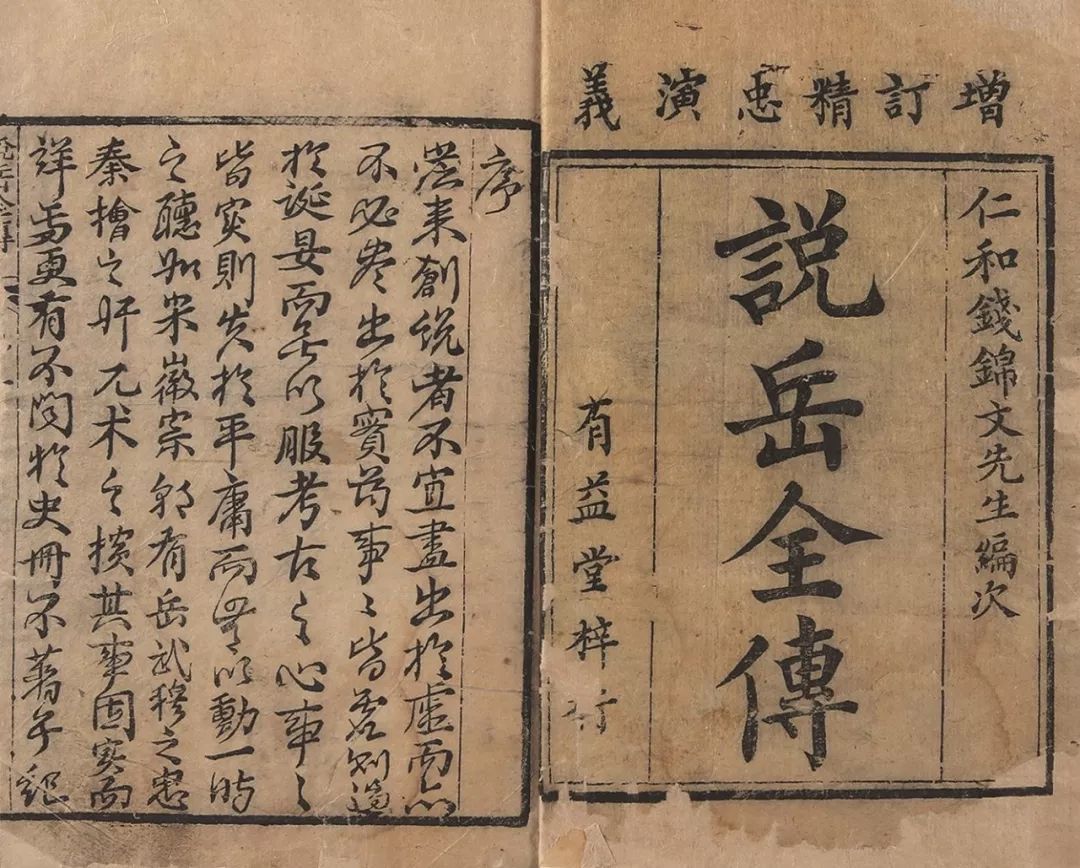 增訂精忠演義
仁和錢錦文先生編次
説岳全傳
有益堂梓行
序
從来創説者不宜盡出於虛而亦
不必盡出於實苟事〻皆虛則過
於誕妄而無以服考古之心事〻
皆实則失於平庸而無以動一時
之聽如宋徽宗朝有岳武穆之忠
秦檜之奸兀术之横其事固实而
詳焉更有不聞於史冊不著於紀